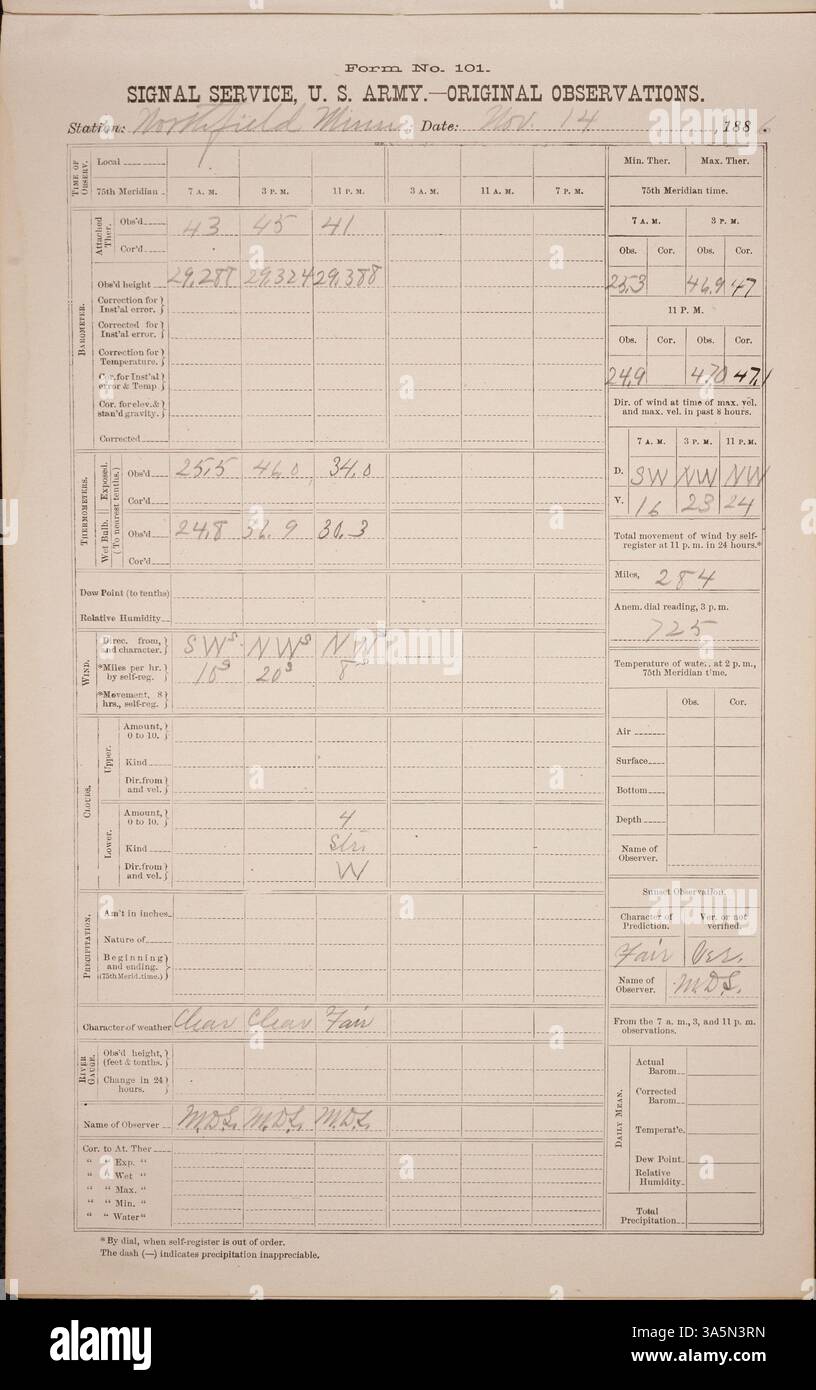 Form No. 101.
SIGNAL SERVICE, U. S. ARMY.—ORIGINAL OBSERVATIONS.
Station: Northfield Minn, Date: Nov. 14, 1886.
TIME OF OBSERV.
Local
75th Meridian 7 A. M. 3 P. M. 11 P. M. 3 A. M. 11 A. M. 7 P. M.
BAROMETER.
Attached Ther.
Obs'd 43 45 41
Cor'd
Obs'd height 29.288 29.324 29.388
Correction for Inst'al error.
Corrected for Inst'al error.
Correction for Temperature.
Cor. for Inst'al error & Temp
Cor. for elev. & stan'd gravity.
Corrected
THERMOMETERS.
(To nearest tenths.)
Exposed.
Obs'd 25.5 46.0 34.0
Cor'd
Wet Bulb.
Obs'd 24.8 36.9 30.3
Cor'd
Dew Point (to tenths)
Relative Humidity
WIND.
Direc. from, and character. SWs NWs NWs
*Miles per hr. by self-reg. 10s 20s 8s
*Movement, 8 hrs., self-reg.
CLOUDS.
Upper.
Amount, 0 to 10.
Kind
Dir. from and vel.
Lower.
Amount, 0 to 10. 4
Kind
Dir. from and vel. W
PRECIPITATION.
Am't in inches
Nature of
Beginning and ending. (75th Merid. time.)
Character of weather Clear Clear Fair
RIVER GAUGE.
Obs'd height, (feet & tenths.)
Change in 24 hours.
Name of Observer M.D.S. M.D.S. M.D.S.
Cor. to At. Ther
" " Exp. "
" " Wet "
" " Max. "
" " Min. "
" " Water "
*By dial, when self-register is out of order.
The dash (—) indicates precipitation inappreciable.
Min. Ther. Max. Ther.
75th Meridian time.
7 A. M. 3 P. M.
Obs. Cor. Obs. Cor.
25.3 46.9 47
11 P. M.
Obs. Cor. Obs. Cor.
24.9 47.0 47.1
Dir. of wind at time of max. vel. and max. vel. in past 8 hours.
7 A. M. 3 P. M. 11 P. M.
D. SW NW NW
V. 16 23 24
Total movement of wind by self-register at 11 p. m. in 24 hours.*
Miles, 284
Anem. dial reading, 3 p. m.
725
Temperature of water, at 2 p. m., 75th Meridian time.
Obs. Cor.
Air
Surface
Bottom
Depth
Name of Observer.
Sunset Observation.
Character of Prediction. Ver. or not verified.
Fair Ver.
Name of Observer. M.D.S.
From the 7 a. m., 3, and 11 p. m. observations.
DAILY MEAN.
Actual Barom
Corrected Barom
Temperat'e.
Dew Point
Relative Humidity
Total Precipitation
alamy
Image ID: 3A5N3RN
www.alamy.com